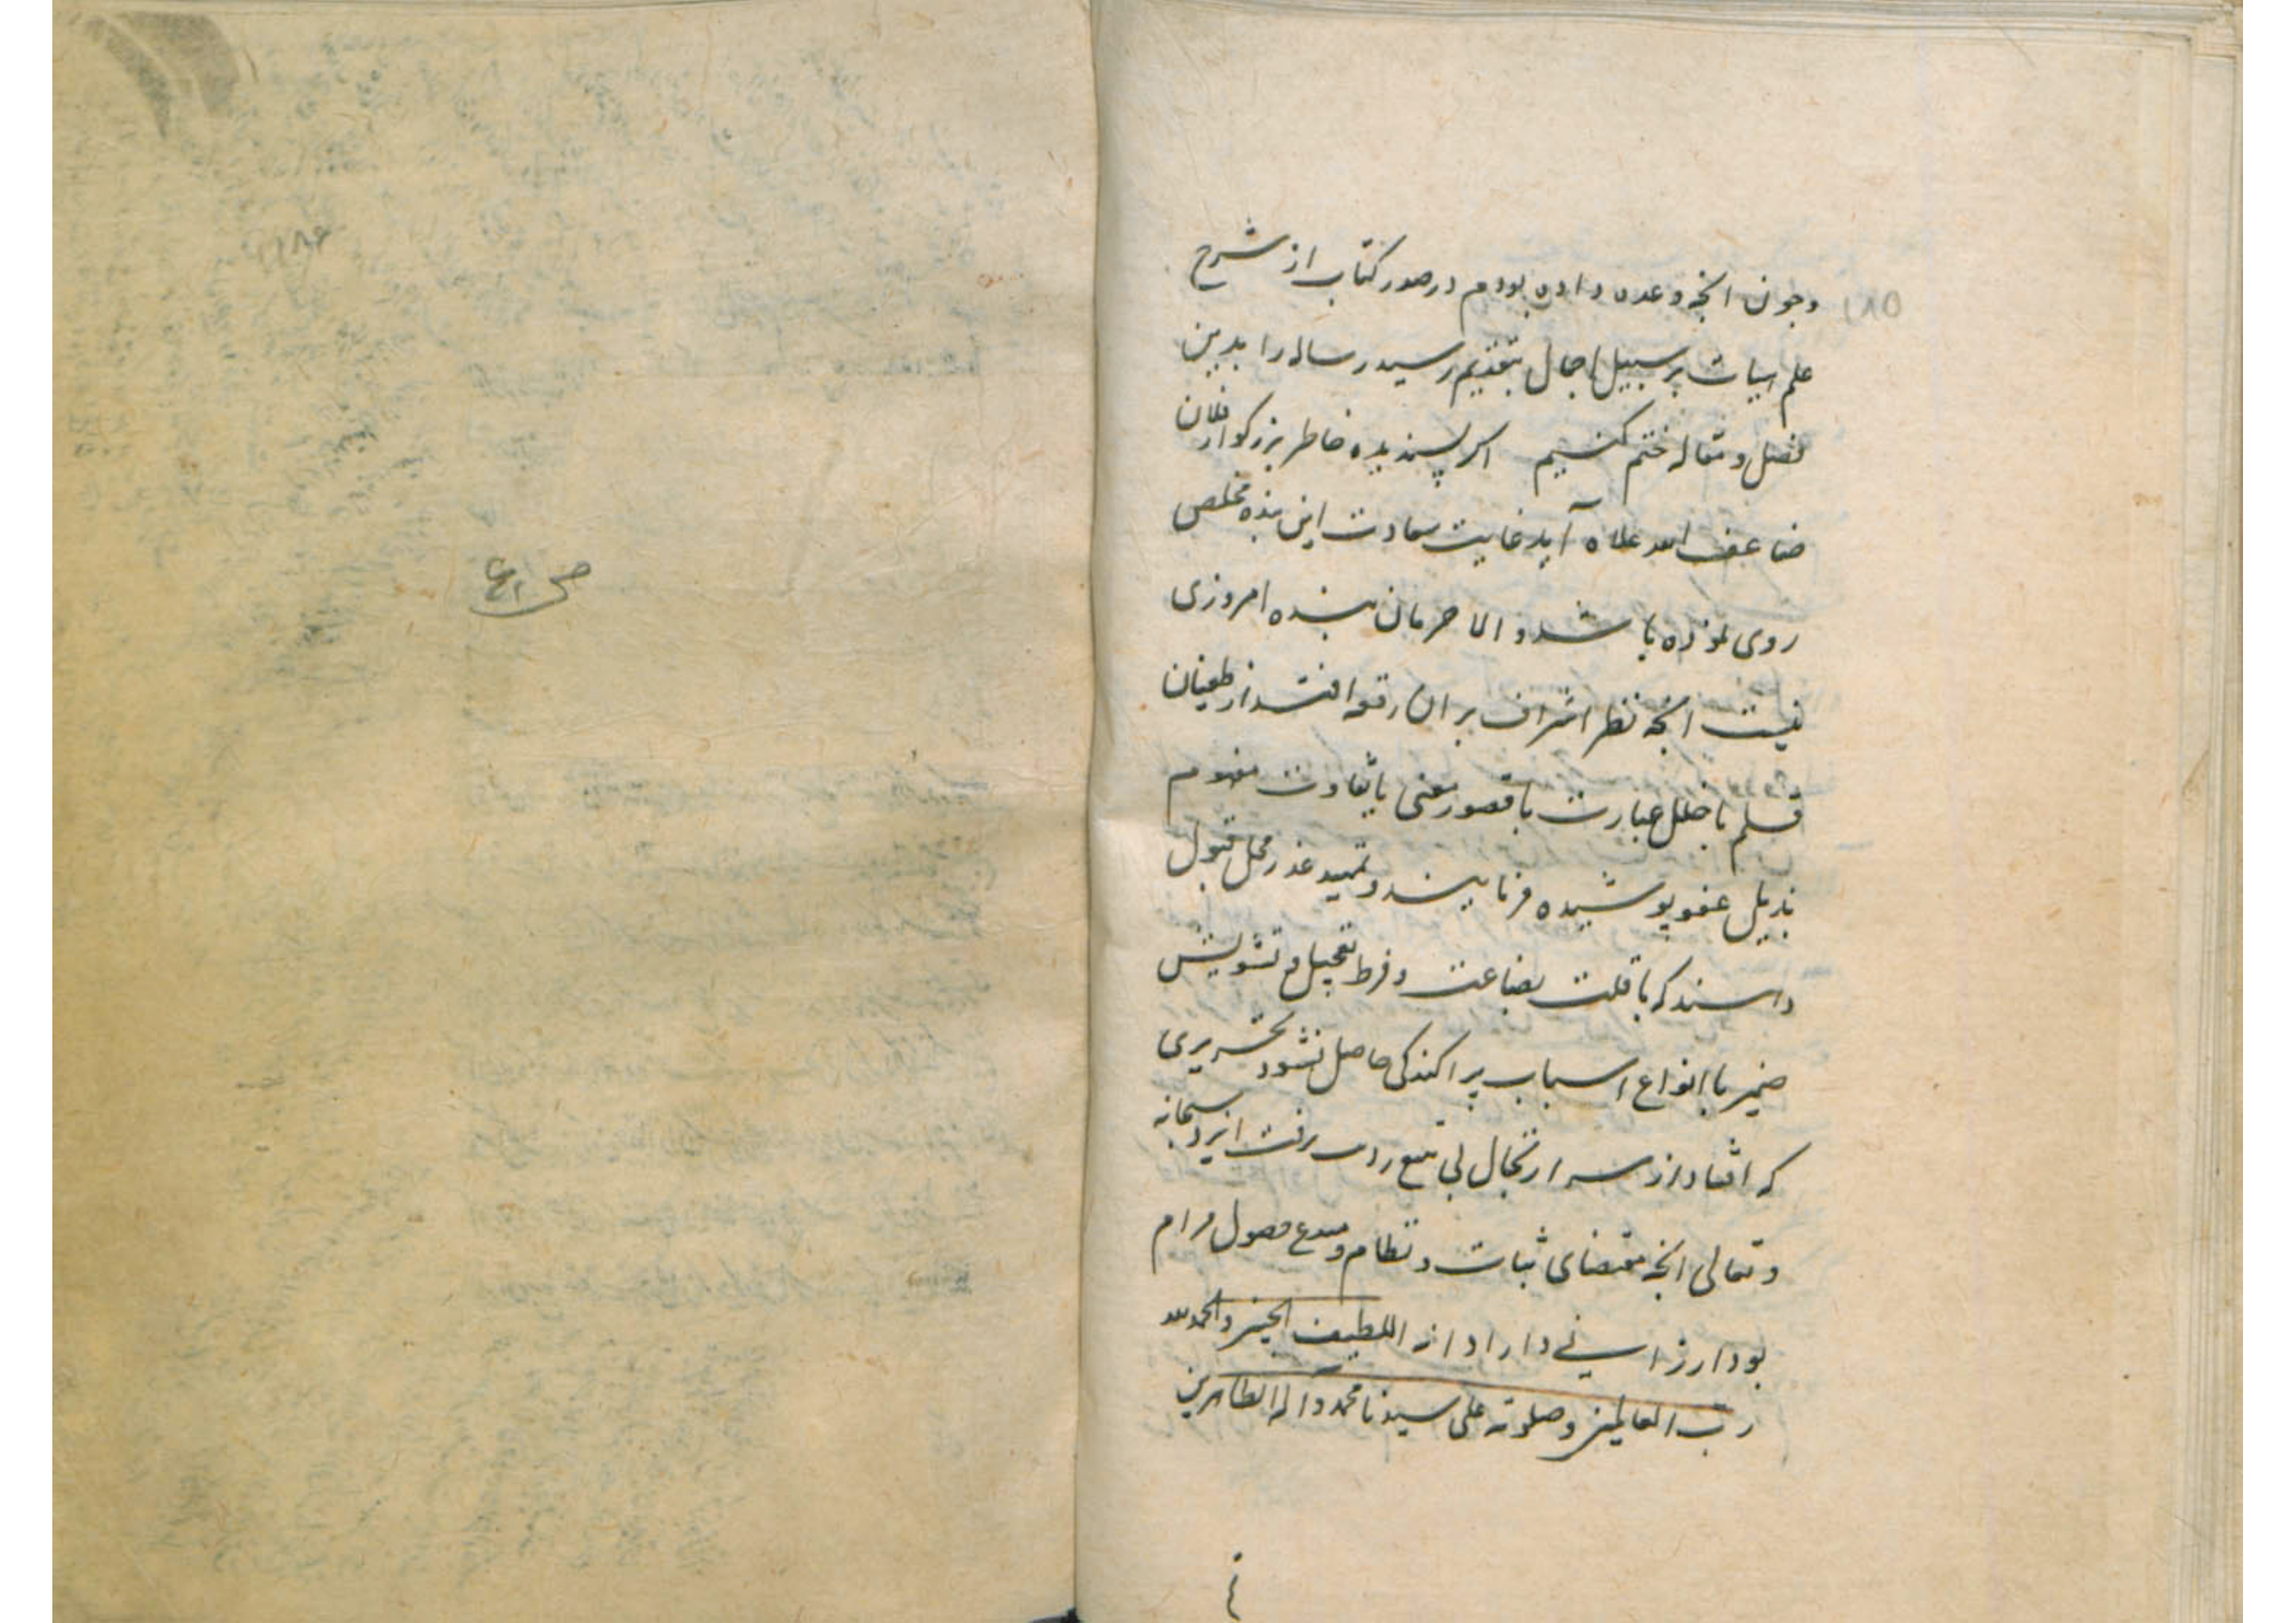 وجون انچه وعده داده بودم در صدر کتاب از شرح
۱۸۵
علم هیات بر سبیل اجمال بتقدیم رسید رساله را بدین
فصل و مقاله ختم کنیم اکر پسندیده خاطر بزرکوار فلان
ضاعف الله علاه آید غایت سعادت این بنده مخلص
روی نموده باشد و الا حرمان بنده امروزی
نیست انچه نظر اشراف بر ان رقعه افتد از طغیان
قلم یا خلل عبارت یا قصور معنی یا تفاوت مفهوم
بذیل عفو پوشیده فرمایند و تمهید عذر محل قبول
دانند که با قلت بضاعت و فرط تعجیل و تشویش
ضمیر با انواع اسباب پراکندکی حاصل نشود تحریری
که اتفاد از سر ارتجال بی رفت ایزد سبحانه
و تعالی انچه مقتضای ثبات و نظام و حصول مرام
بود ارزانی داراد انه اللطیف الخبیر والحمد لله
رب العالمین وصلوته علی سیدنا محمد وآله الطاهرین